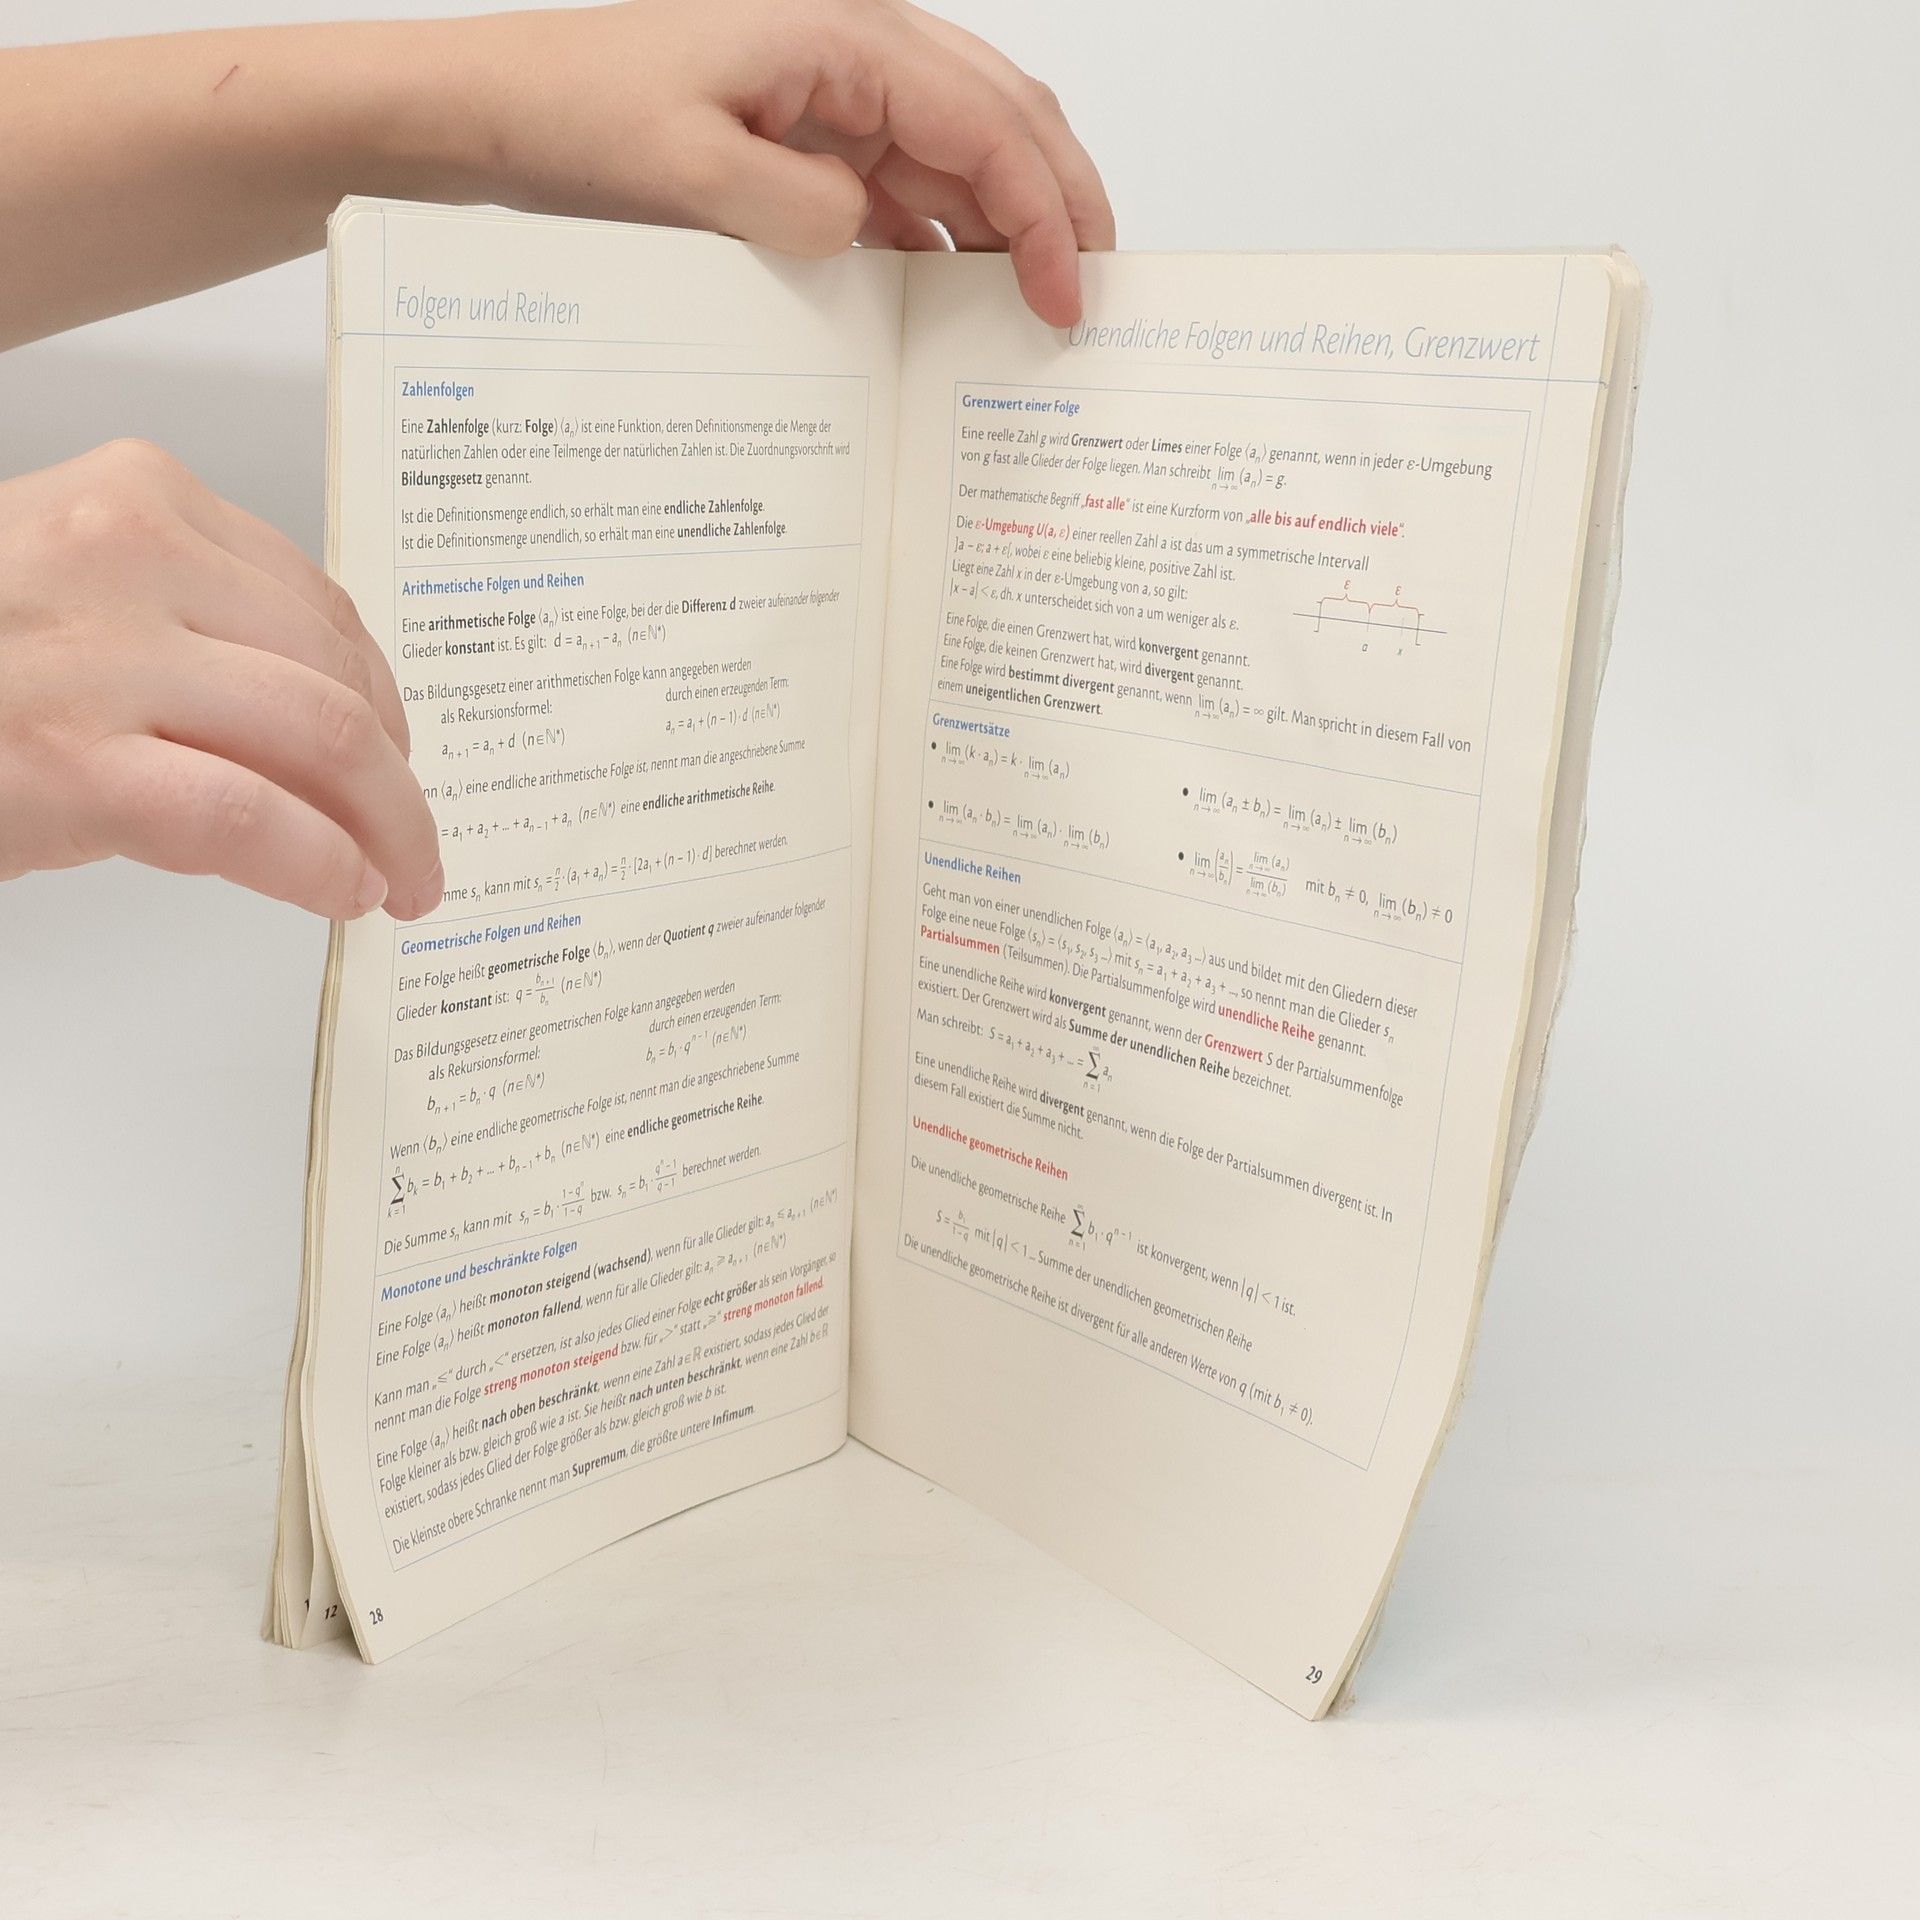 Folgen und Reihen
Zahlenfolgen
Eine Zahlenfolge (kurz: Folge) ⟨aₙ⟩ ist eine Funktion, deren Definitionsmenge die Menge der
natürlichen Zahlen oder eine Teilmenge der natürlichen Zahlen ist. Die Zuordnungsvorschrift wird
Bildungsgesetz genannt.
Ist die Definitionsmenge endlich, so erhält man eine endliche Zahlenfolge.
Ist die Definitionsmenge unendlich, so erhält man eine unendliche Zahlenfolge.
Arithmetische Folgen und Reihen
Eine arithmetische Folge ⟨aₙ⟩ ist eine Folge, bei der die Differenz d zweier aufeinander folgender
Glieder konstant ist. Es gilt: d = aₙ₊₁ − aₙ (n∈ℕ*)
Das Bildungsgesetz einer arithmetischen Folge kann angegeben werden
als Rekursionsformel: durch einen erzeugenden Term:
aₙ₊₁ = aₙ + d (n∈ℕ*) aₙ = a₁ + (n − 1) · d (n∈ℕ*)
nn ⟨aₙ⟩ eine endliche arithmetische Folge ist, nennt man die angeschriebene Summe
= a₁ + a₂ + ... + aₙ₋₁ + aₙ (n∈ℕ*) eine endliche arithmetische Reihe.
mme sₙ kann mit sₙ = n/2 · (a₁ + aₙ) = n/2 · [2a₁ + (n − 1) · d] berechnet werden.
Geometrische Folgen und Reihen
Eine Folge heißt geometrische Folge ⟨bₙ⟩, wenn der Quotient q zweier aufeinander folgender
Glieder konstant ist: q = bₙ₊₁/bₙ (n∈ℕ*)
Das Bildungsgesetz einer geometrischen Folge kann angegeben werden
als Rekursionsformel: durch einen erzeugenden Term:
bₙ₊₁ = bₙ · q (n∈ℕ*) bₙ = b₁ · qⁿ⁻¹ (n∈ℕ*)
Wenn ⟨bₙ⟩ eine endliche geometrische Folge ist, nennt man die angeschriebene Summe
∑ₖ₌₁ⁿ bₖ = b₁ + b₂ + ... + bₙ₋₁ + bₙ (n∈ℕ*) eine endliche geometrische Reihe.
Die Summe sₙ kann mit sₙ = b₁ · (1−qⁿ)/(1−q) bzw. sₙ = b₁ · (qⁿ−1)/(q−1) berechnet werden.
Monotone und beschränkte Folgen
Eine Folge ⟨aₙ⟩ heißt monoton steigend (wachsend), wenn für alle Glieder gilt: aₙ ≤ aₙ₊₁ (n∈ℕ*)
Eine Folge ⟨aₙ⟩ heißt monoton fallend, wenn für alle Glieder gilt: aₙ ≥ aₙ₊₁ (n∈ℕ*)
Kann man „≤“ durch „<“ ersetzen, ist also jedes Glied einer Folge echt größer als sein Vorgänger, so
nennt man die Folge streng monoton steigend bzw. für „>“ statt „≥“ streng monoton fallend.
Eine Folge ⟨aₙ⟩ heißt nach oben beschränkt, wenn eine Zahl a∈ℝ existiert, sodass jedes Glied der
Folge kleiner als bzw. gleich groß wie a ist. Sie heißt nach unten beschränkt, wenn eine Zahl b∈ℝ
existiert, sodass jedes Glied der Folge größer als bzw. gleich groß wie b ist.
Die kleinste obere Schranke nennt man Supremum, die größte untere Infimum.
12
28
Unendliche Folgen und Reihen, Grenzwert
Grenzwert einer Folge
Eine reelle Zahl g wird Grenzwert oder Limes einer Folge ⟨aₙ⟩ genannt, wenn in jeder ε-Umgebung
von g fast alle Glieder der Folge liegen. Man schreibt lim n→∞ (aₙ) = g.
Der mathematische Begriff „fast alle“ ist eine Kurzform von „alle bis auf endlich viele“.
Die ε-Umgebung U(a, ε) einer reellen Zahl a ist das um a symmetrische Intervall
]a − ε; a + ε[, wobei ε eine beliebig kleine, positive Zahl ist.
Liegt eine Zahl x in der ε-Umgebung von a, so gilt:
|x − a| < ε, dh. x unterscheidet sich von a um weniger als ε.
ε ε
a x
Eine Folge, die einen Grenzwert hat, wird konvergent genannt.
Eine Folge, die keinen Grenzwert hat, wird divergent genannt.
Eine Folge wird bestimmt divergent genannt, wenn lim n→∞ (aₙ) = ∞ gilt. Man spricht in diesem Fall von
einem uneigentlichen Grenzwert.
Grenzwertsätze
• lim n→∞ (k · aₙ) = k · lim n→∞ (aₙ)
• lim n→∞ (aₙ ± bₙ) = lim n→∞ (aₙ) ± lim n→∞ (bₙ)
• lim n→∞ (aₙ · bₙ) = lim n→∞ (aₙ) · lim n→∞ (bₙ)
• lim n→∞ (aₙ/bₙ) = lim n→∞ (aₙ) / lim n→∞ (bₙ) mit bₙ ≠ 0, lim n→∞ (bₙ) ≠ 0
Unendliche Reihen
Geht man von einer unendlichen Folge ⟨aₙ⟩ = ⟨a₁, a₂, a₃ ...⟩ aus und bildet mit den Gliedern dieser
Folge eine neue Folge ⟨sₙ⟩ = ⟨s₁, s₂, s₃ ...⟩ mit sₙ = a₁ + a₂ + a₃ + ..., so nennt man die Glieder sₙ
Partialsummen (Teilsummen). Die Partialsummenfolge wird unendliche Reihe genannt.
Eine unendliche Reihe wird konvergent genannt, wenn der Grenzwert S der Partialsummenfolge
existiert. Der Grenzwert wird als Summe der unendlichen Reihe bezeichnet.
Man schreibt: S = a₁ + a₂ + a₃ + ... = ∑ n=1 ∞ aₙ
Eine unendliche Reihe wird divergent genannt, wenn die Folge der Partialsummen divergent ist. In
diesem Fall existiert die Summe nicht.
Unendliche geometrische Reihen
Die unendliche geometrische Reihe ∑ n=1 ∞ b₁ · qⁿ⁻¹ ist konvergent, wenn |q| < 1 ist.
S = b₁/(1−q) mit |q| < 1 ... Summe der unendlichen geometrischen Reihe
Die unendliche geometrische Reihe ist divergent für alle anderen Werte von q (mit b₁ ≠ 0).
29